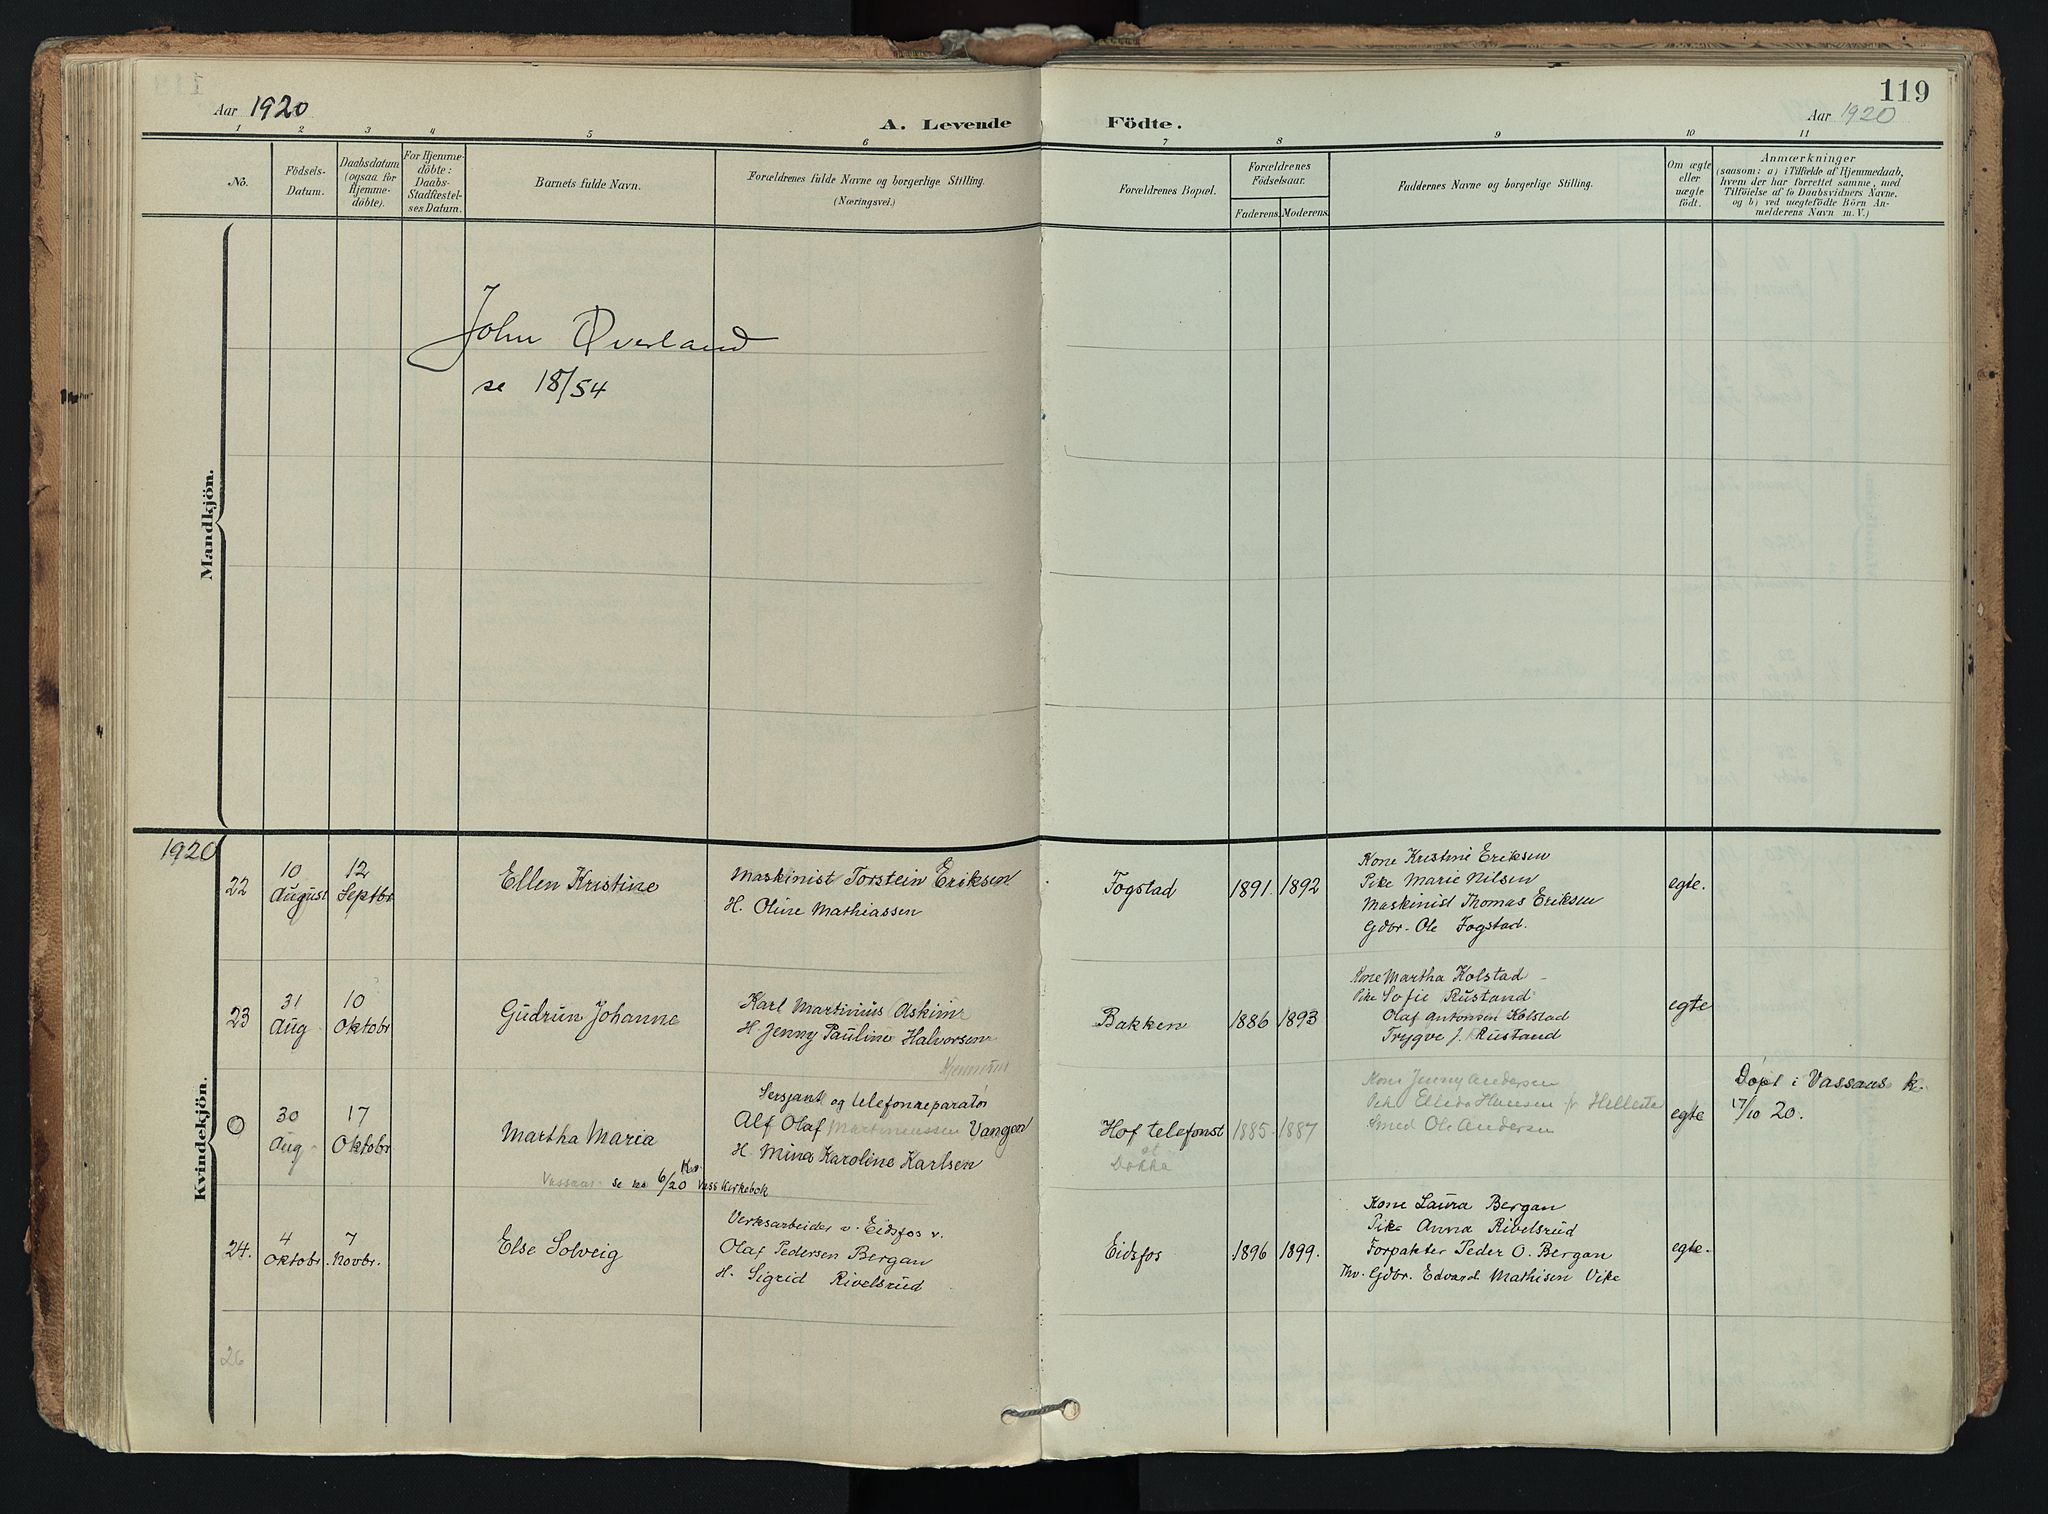 119
Aar 1920
A. Levende Födte.
Aar 1920
1 2 3 4 5 6 7 8 9 10 11
No.
Födsels-
Datum.
Daabsdatum
(ogsaa for
Hjemme-
döbte).
For Hjemme-
döbte:
Daabs-
Stadfæstel-
ses Datum.
Barnets fulde Navn.
Forældrenes fulde Navne og borgerlige Stilling.
(Næringsvei.)
Forældrenes Bopæl.
Forældrenes
Födselsaar.
Faderens.
Moderens.
Faddernes Navne og borgerlige Stilling.
Om ægte
eller
uægte
födt.
Anmærkninger
(saasom: a) i Tilfælde af Hjemmedaab,
hvem der har forrettet samme, med
Tilföielse af to Daabsvidners Navne,
og b) ved uægtefödte Börn An-
melderens Navn m. V.)
Mandkjön.
John Øverland
se 18/54
Kvindekjön.
1920
22
10
August
12
Septbr
Ellen Kristine
Maskinist Torstein Eriksen
H. Oline Mathiassen
Fogstad
1891.
1892
Kone Kristine Eriksen
Pike Marie Nilsen
Maskinist Thomas Eriksen
Gdbr. Ole Fogstad.
egte.
23
31
Aug
10
Oktobr
Gudrun Johanne
Karl Martinius Askim
H. Jenny Pauline Halvorsen
Bakken
1886
1893
Kone Martha Kolstad
Pike Sofie Rustand
Olaf Antonsen Kolstad
Trygve J. Rustand
egte
O
30
Aug
17
Oktobr
Martha Maria
Vassaas se no 6/20 Kv. Vass Kirkebok
Sersjant og telefonreparatør
Alf Olaf Martineussen Vangen
H. Mina Karoline Karlsen
Hof telefonst
st
Dokka
1885.
1887
Kone Jenny Andersen
Pike Ellida Hansen
Smed Ole Andersen
egte
Døpt i Vassaas k.
17/10 20.
24.
4
Oktobr.
7
Novbr.
Else Solveig
Verksarbeider v. Eidsfos v.
Olaf Pedersen Bergan
H. Sigrid Rivelsrud
Eidsfos
1896
1899.
Kone Laura Bergan
Pike Anna Rivelsrud
Forpakter Peder O. Bergan
Thv. Gdbr. Edvard Mathisen Vike
egte.
26